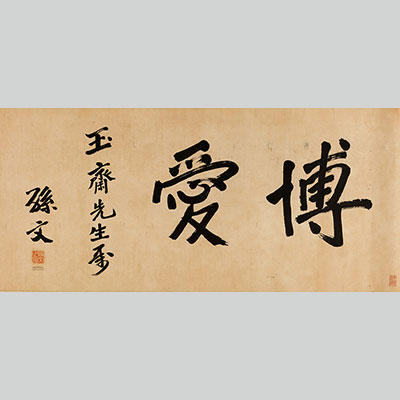 博愛
玉齋先生屬
孫文